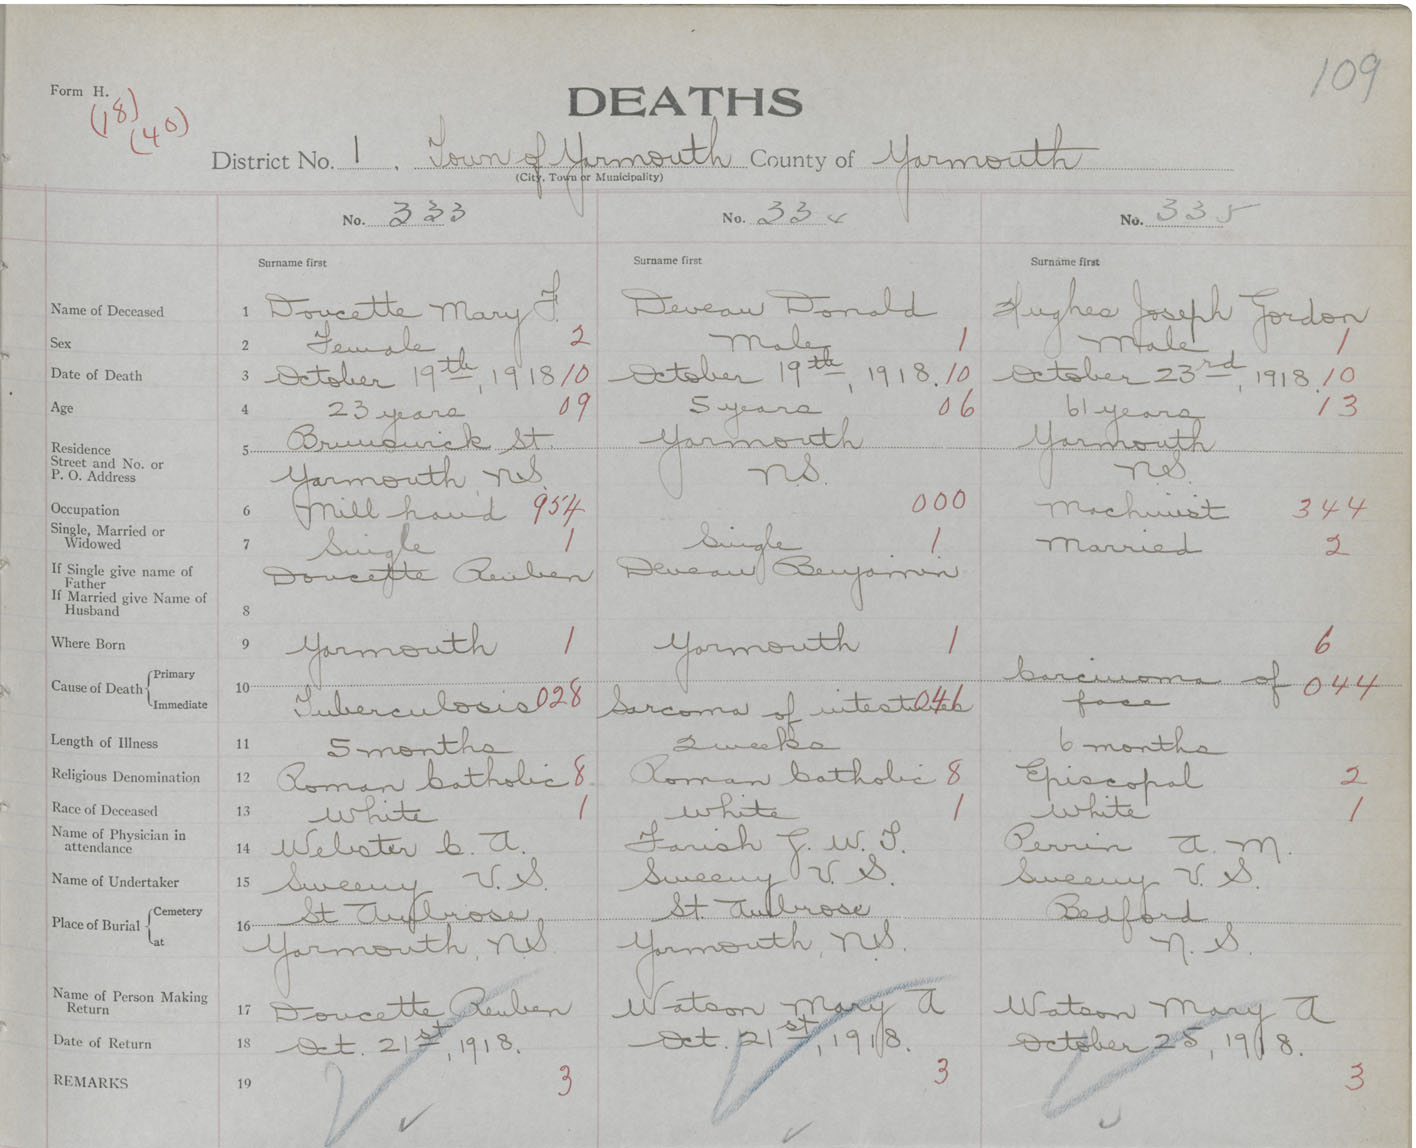 109
Form H.
(18)
(40)
DEATHS
District No. 1, Town of Yarmouth County of Yarmouth
(City, Town or Municipality)
No. 333 No. 334 No. 335
Surname first Surname first Surname first
Name of Deceased 1 Doucette Mary F. Deveau Donald Hughes Joseph Gordon
Sex 2 Female 2 Male 1 Male 1
Date of Death 3 October 19th, 1918 10 October 19th, 1918. 10 October 23rd, 1918. 10
Age 4 23 years 09 5 years 06 61 years 13
Residence 5 Brunswick St. Yarmouth Yarmouth
Street and No. or
P. O. Address Yarmouth, N.S. N.S. N.S.
Occupation 6 Mill hand 954 000 Machinist 344
Single, Married or
Widowed 7 Single 1 Single 1 Married 2
If Single give name of
Father Doucette Reuben Deveau Benjamin
If Married give Name of
Husband 8
Where Born 9 Yarmouth 1 Yarmouth 1 6
Cause of Death Primary 10 Carcinoma of 044
Immediate Tuberculosis 028 Sarcoma of intestines 041 face
Length of Illness 11 5 months 2 weeks 6 months
Religious Denomination 12 Roman Catholic 8 Roman Catholic 8 Episcopal 2
Race of Deceased 13 White 1 White 1 White 1
Name of Physician in
attendance 14 Webster C. A. Farish G. W. T. Perrin A. M.
Name of Undertaker 15 Sweeny V. S. Sweeny V. S. Sweeny V. S.
Place of Burial Cemetery 16 St Ambrose St. Ambrose Bedford
at Yarmouth, N.S. Yarmouth, N.S. N. S.
Name of Person Making
Return 17 Doucette Reuben Watson Mary A Watson Mary A
Date of Return 18 Oct. 21st, 1918. Oct. 21st, 1918. October 25, 1918.
REMARKS 19 3 3 3